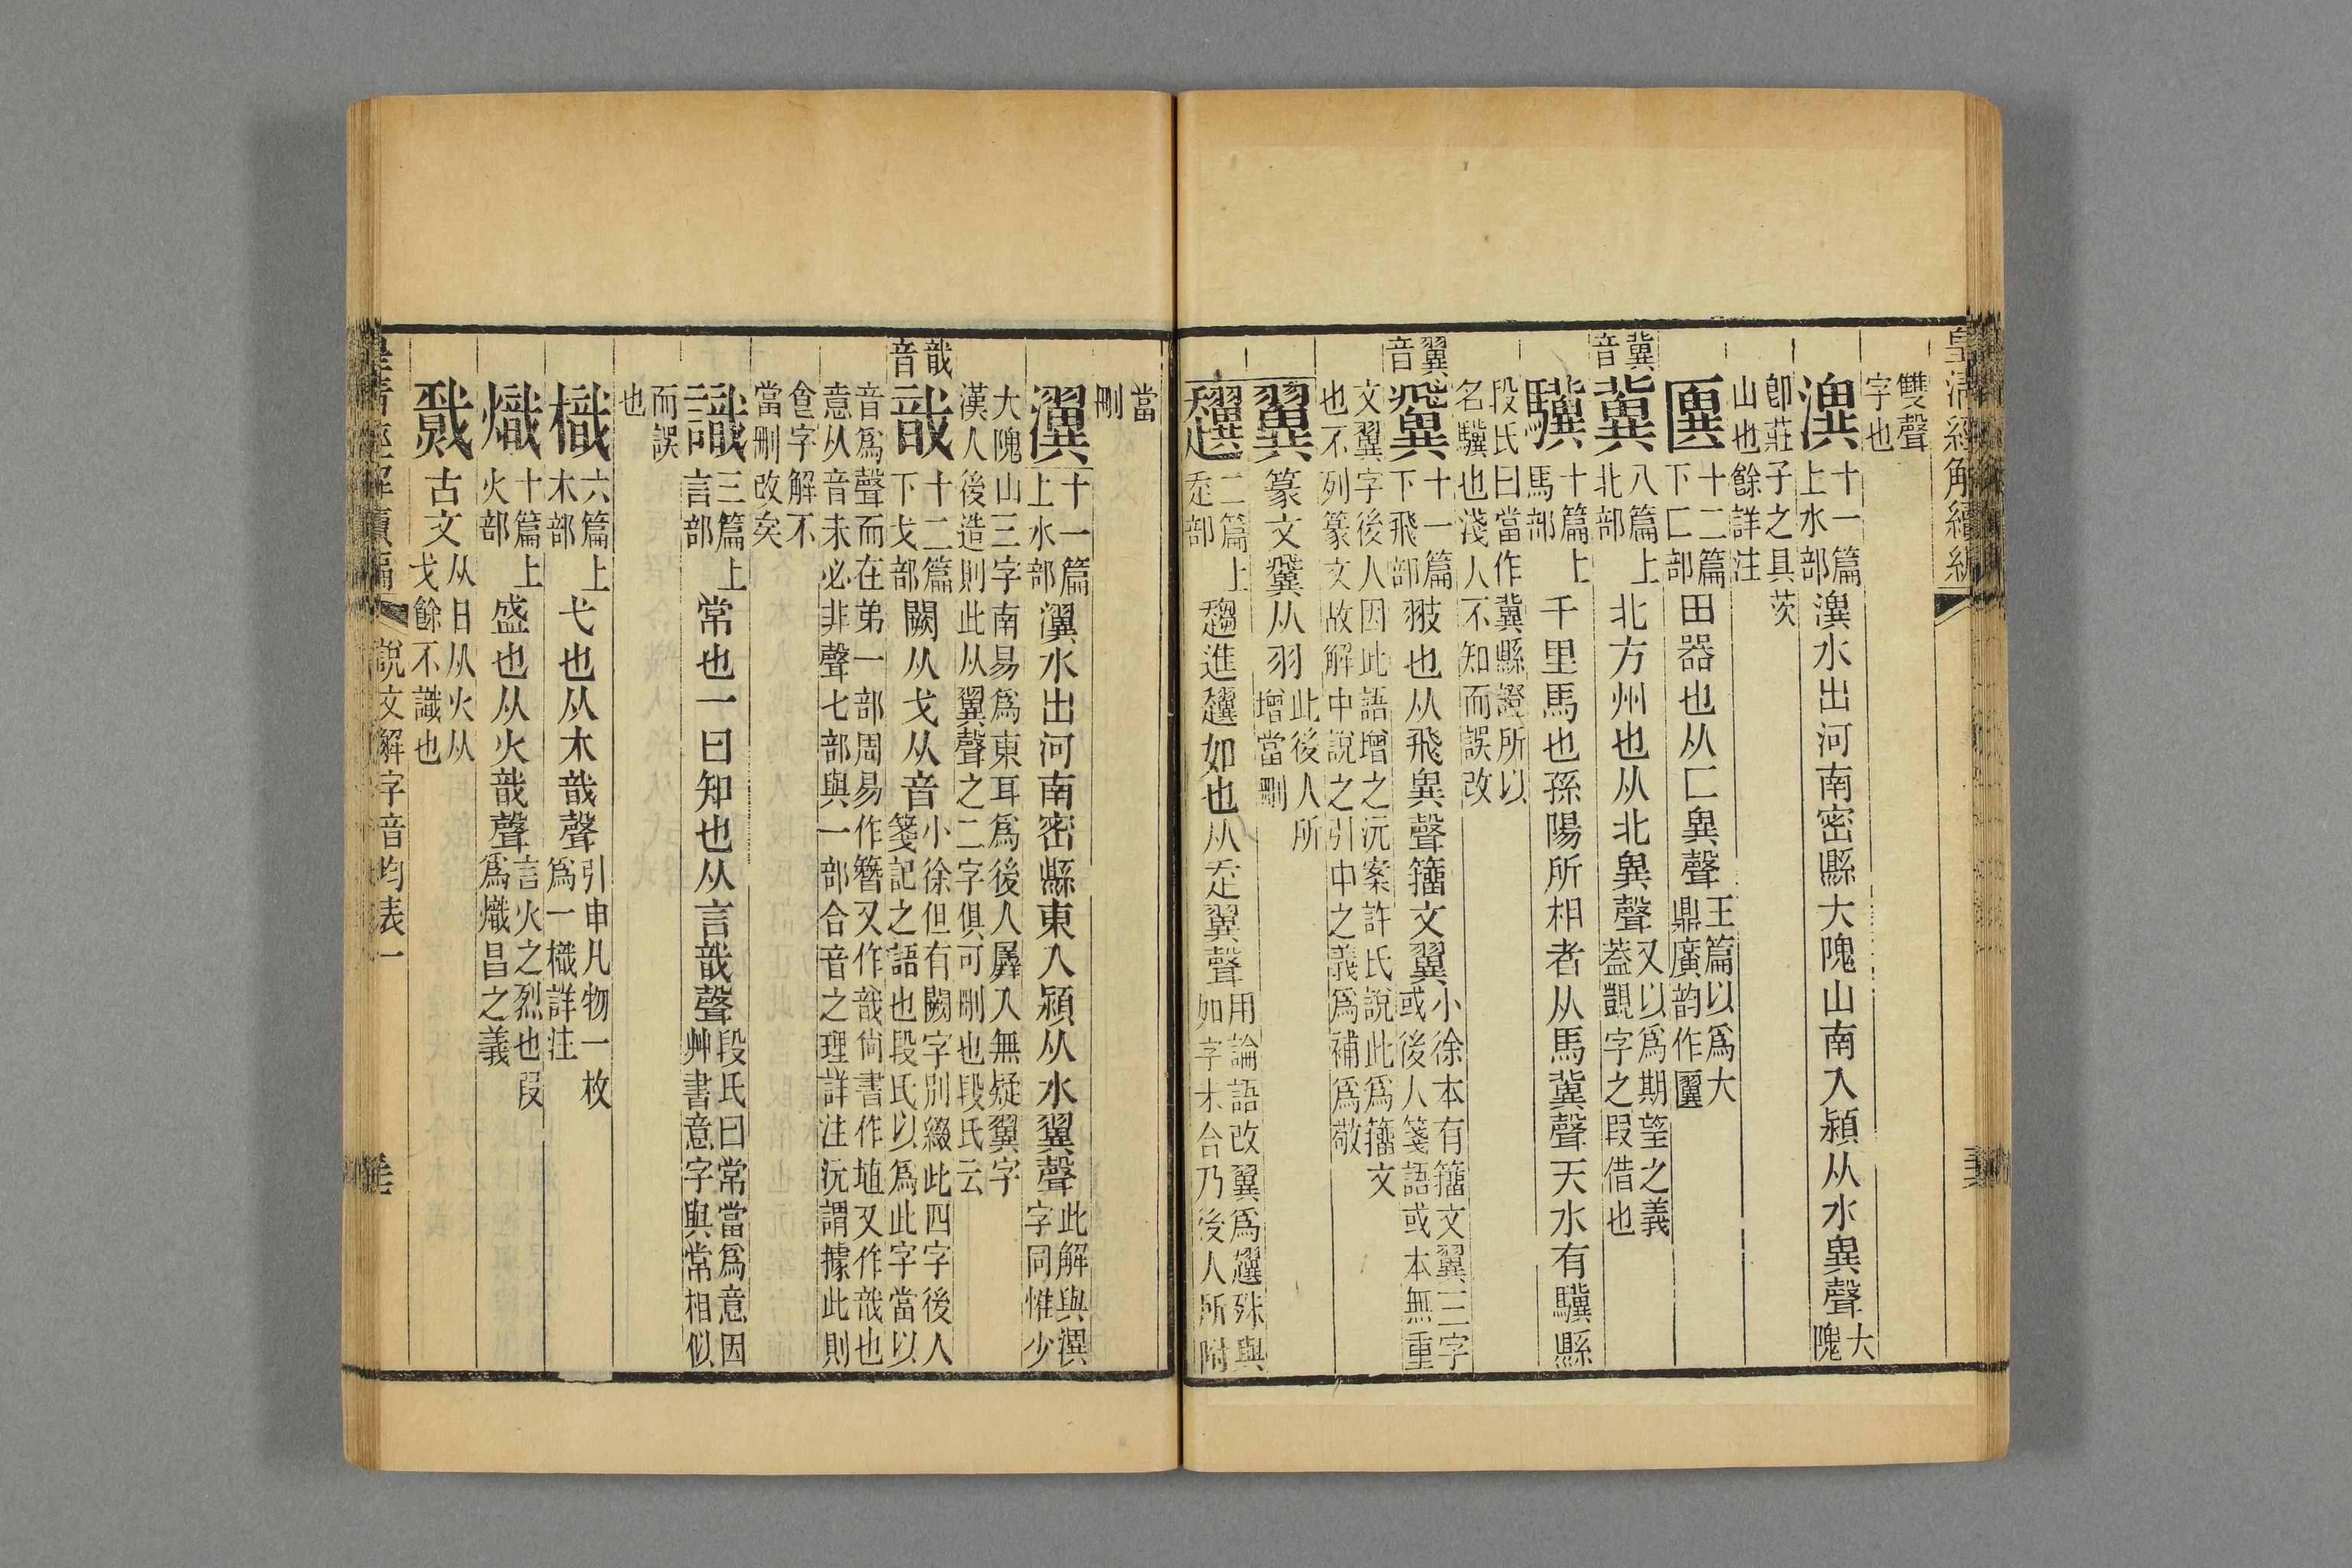 皇清經解續編
雙聲字也
潩十一篇上水部潩水出河南密縣大隗山南入潁从水異聲大隗
卽莊子之具茨山也餘詳注
匴十二篇下匚部田器也从匚異聲王篇以爲大鼎廣韵作匷
冀音冀八篇上北部北方州也从北異聲又以爲期望之義葢覬字之叚借也
驥十篇上馬部千里馬也孫陽所相者从馬冀聲天水有驥縣
段氏曰當作冀縣證所以名驥也淺人不知而誤改
翼音䨂十一篇下飛部翄也从飛異聲籒文翼小徐本有籒文翼三字或後人箋語或本無重
文翼字後人因此語增之沅案許氏說此爲籒文也不列篆文故解中說之引中之義爲補爲敬
翼篆文䨂从羽此後人所增當刪
趩二篇上辵部趨進趩如也从辵翼聲用論語改翼爲趩殊與如字未合乃後人所附
當刪
瀷十一篇上水部瀷水出河南密縣東入潁从水翼聲此解與潩字同惟少
大隗山三字南易爲東耳爲後人羼入無疑翼字漢人後造則此从翼聲之二字俱可刪也段氏云
戠音戠十二篇下戈部闕从戈从音小徐但有闕字別綴此四字後人箋記之語也段氏以爲此字當以
音爲聲而在弟一部周易作簪又作戠尙書作埴又作戠也意从音未必非聲七部與一部合音之理詳注沅謂據此則
㑹字解不當刪改矣
識三篇上言部常也一曰知也从言戠聲段氏曰常當爲意因艸書意字與常相似
而誤也
樴六篇上木部弋也从木戠聲引申凡物一枚爲一樴詳注
熾十篇上火部盛也从火戠聲言火之烈也叚爲熾昌之義
𢧤古文从日从火从戈餘不識也
皇清經解續編 說文解字音均表一